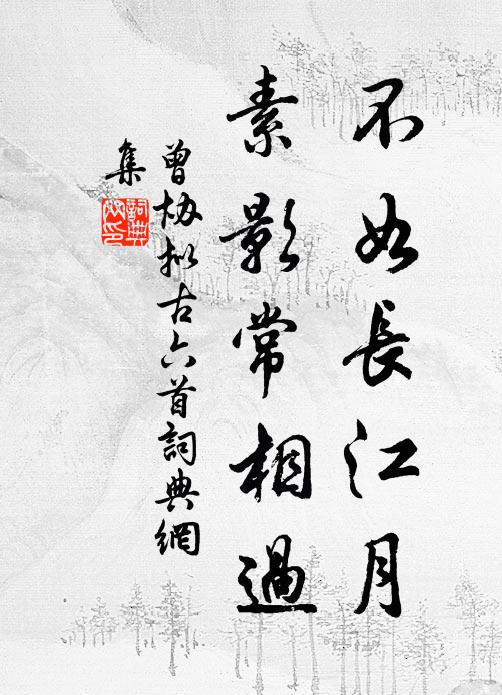 不如長江月
素影常相過
曾协拟古六首詞典網
集
詞典
网印